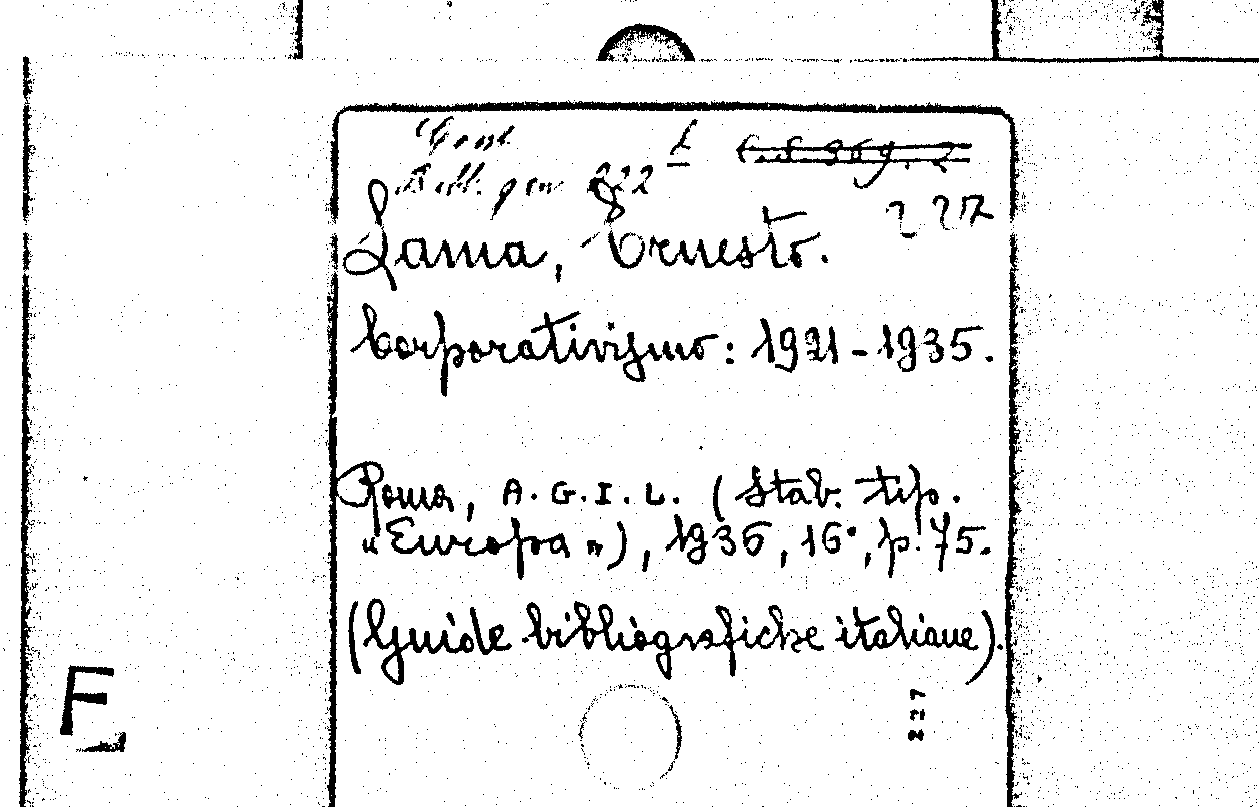 Cons
Bibl. gen 222 L
227
Lama, Ernesto.
Corporativismo: 1921-1935.
Roma, A.G.I.L. (Stab. tip.
„Europa"), 1936, 16°, p. 75.
(Guide bibliografiche italiane).
227
F